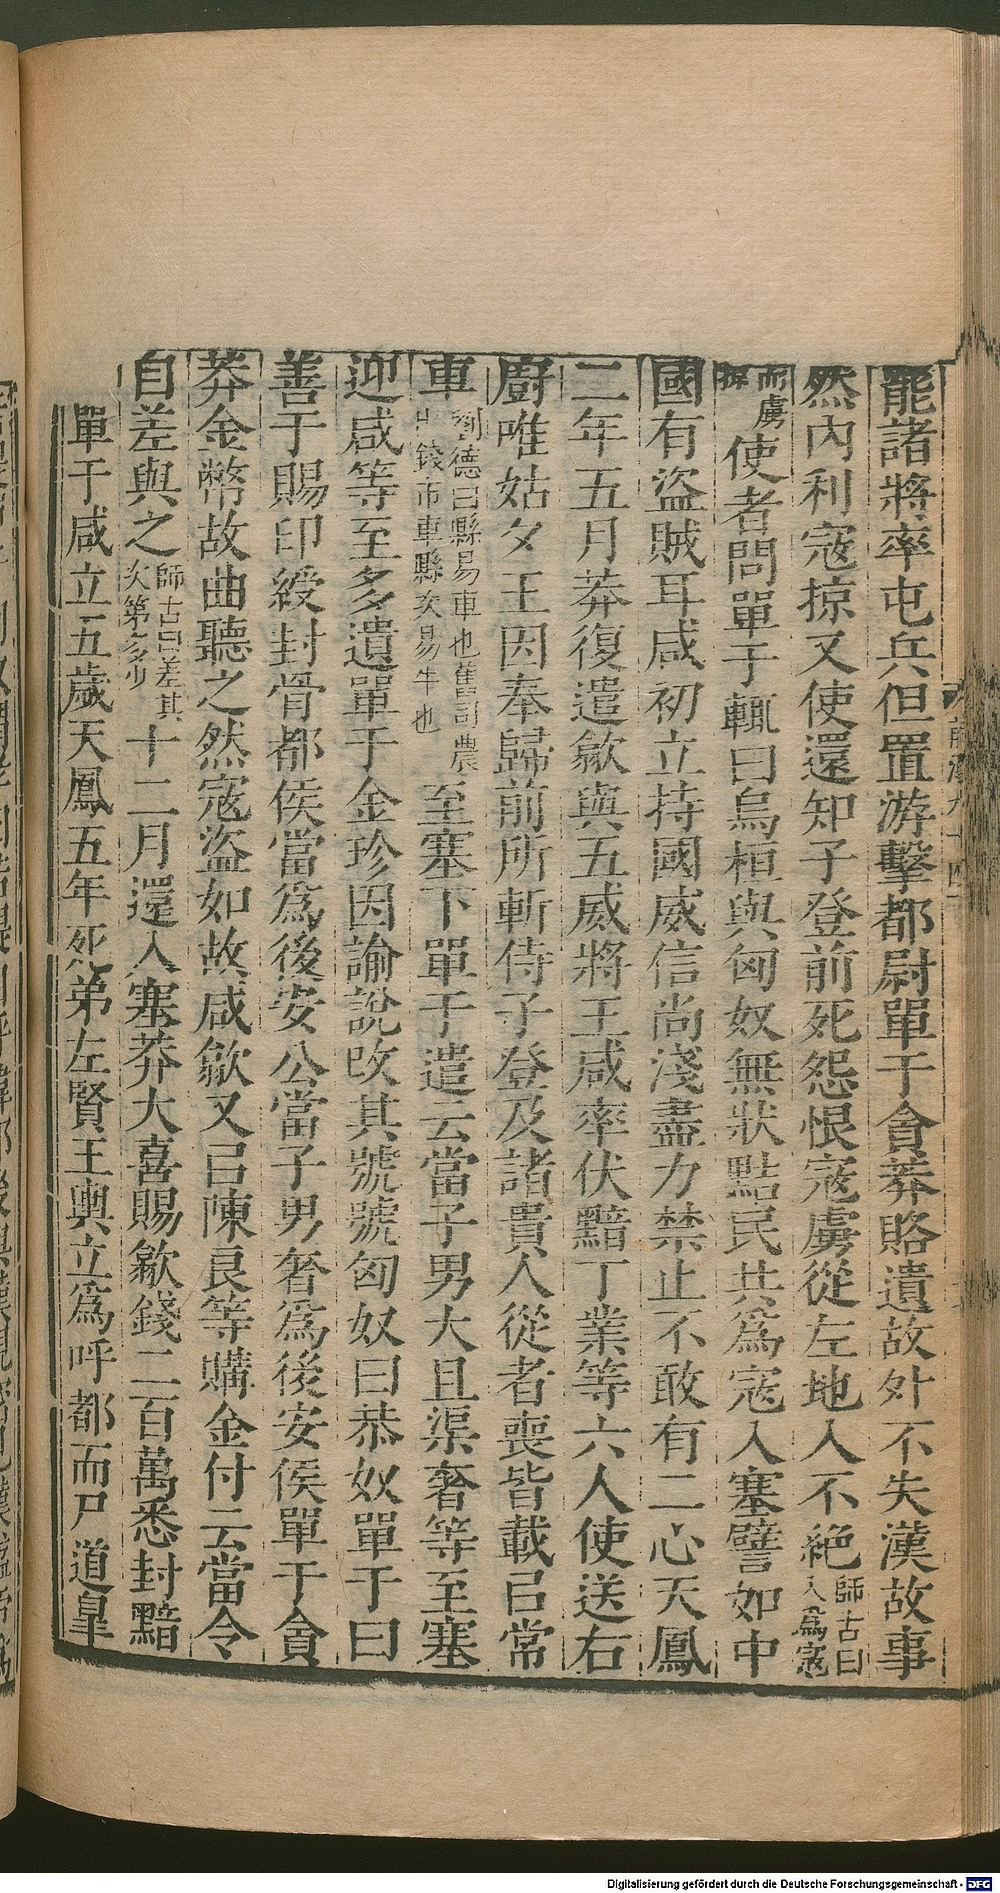 能諸將率屯兵但置游擊都尉單于貪莽賂遺故外不失漢故事
然內利寇掠又使還知子登前死怨恨寇虜從左地入不絕師古曰入爲寇
而虜掠使者問單于輒曰烏桓與匈奴無狀黠民共爲寇入塞譬如中
國有盜賊耳咸初立持國威信尚淺盡力禁止不敢有二心天鳳
二年五月莽復遣歙與五威將王咸率伏黯丁業等六人使送右
廚唯姑夕王因奉歸前所斬侍子登及諸貴人從者喪皆載㠯常
車劉德曰縣易車也舊司農出錢市車縣次易牛也至塞下單于遣云當子男大且渠奢等至塞
迎咸等至多遺單于金珍因諭說改其號號匈奴曰恭奴單于曰
善于賜印綬封骨都侯當爲後安公當子男奢爲後安侯單于貪
莽金幣故曲聽之然寇盜如故咸歙又㠯陳良等購金付云當令
自差與之師古曰差其次第多少十二月還入塞莽大喜賜歙錢二百萬悉封黯
單于咸立五歲天鳳五年死弟左賢王輿立爲呼都而尸道皐
Digitalisierung gefördert durch die Deutsche Forschungsgemeinschaft - DFG